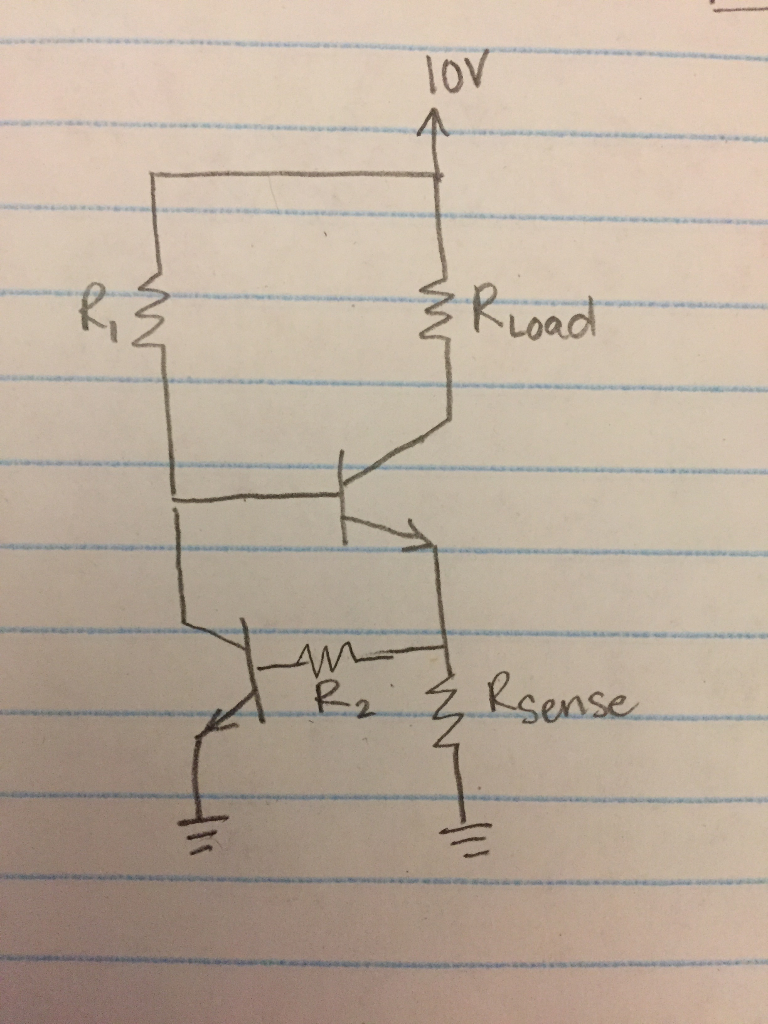 10V
R1 RLoad
R2 Rsense